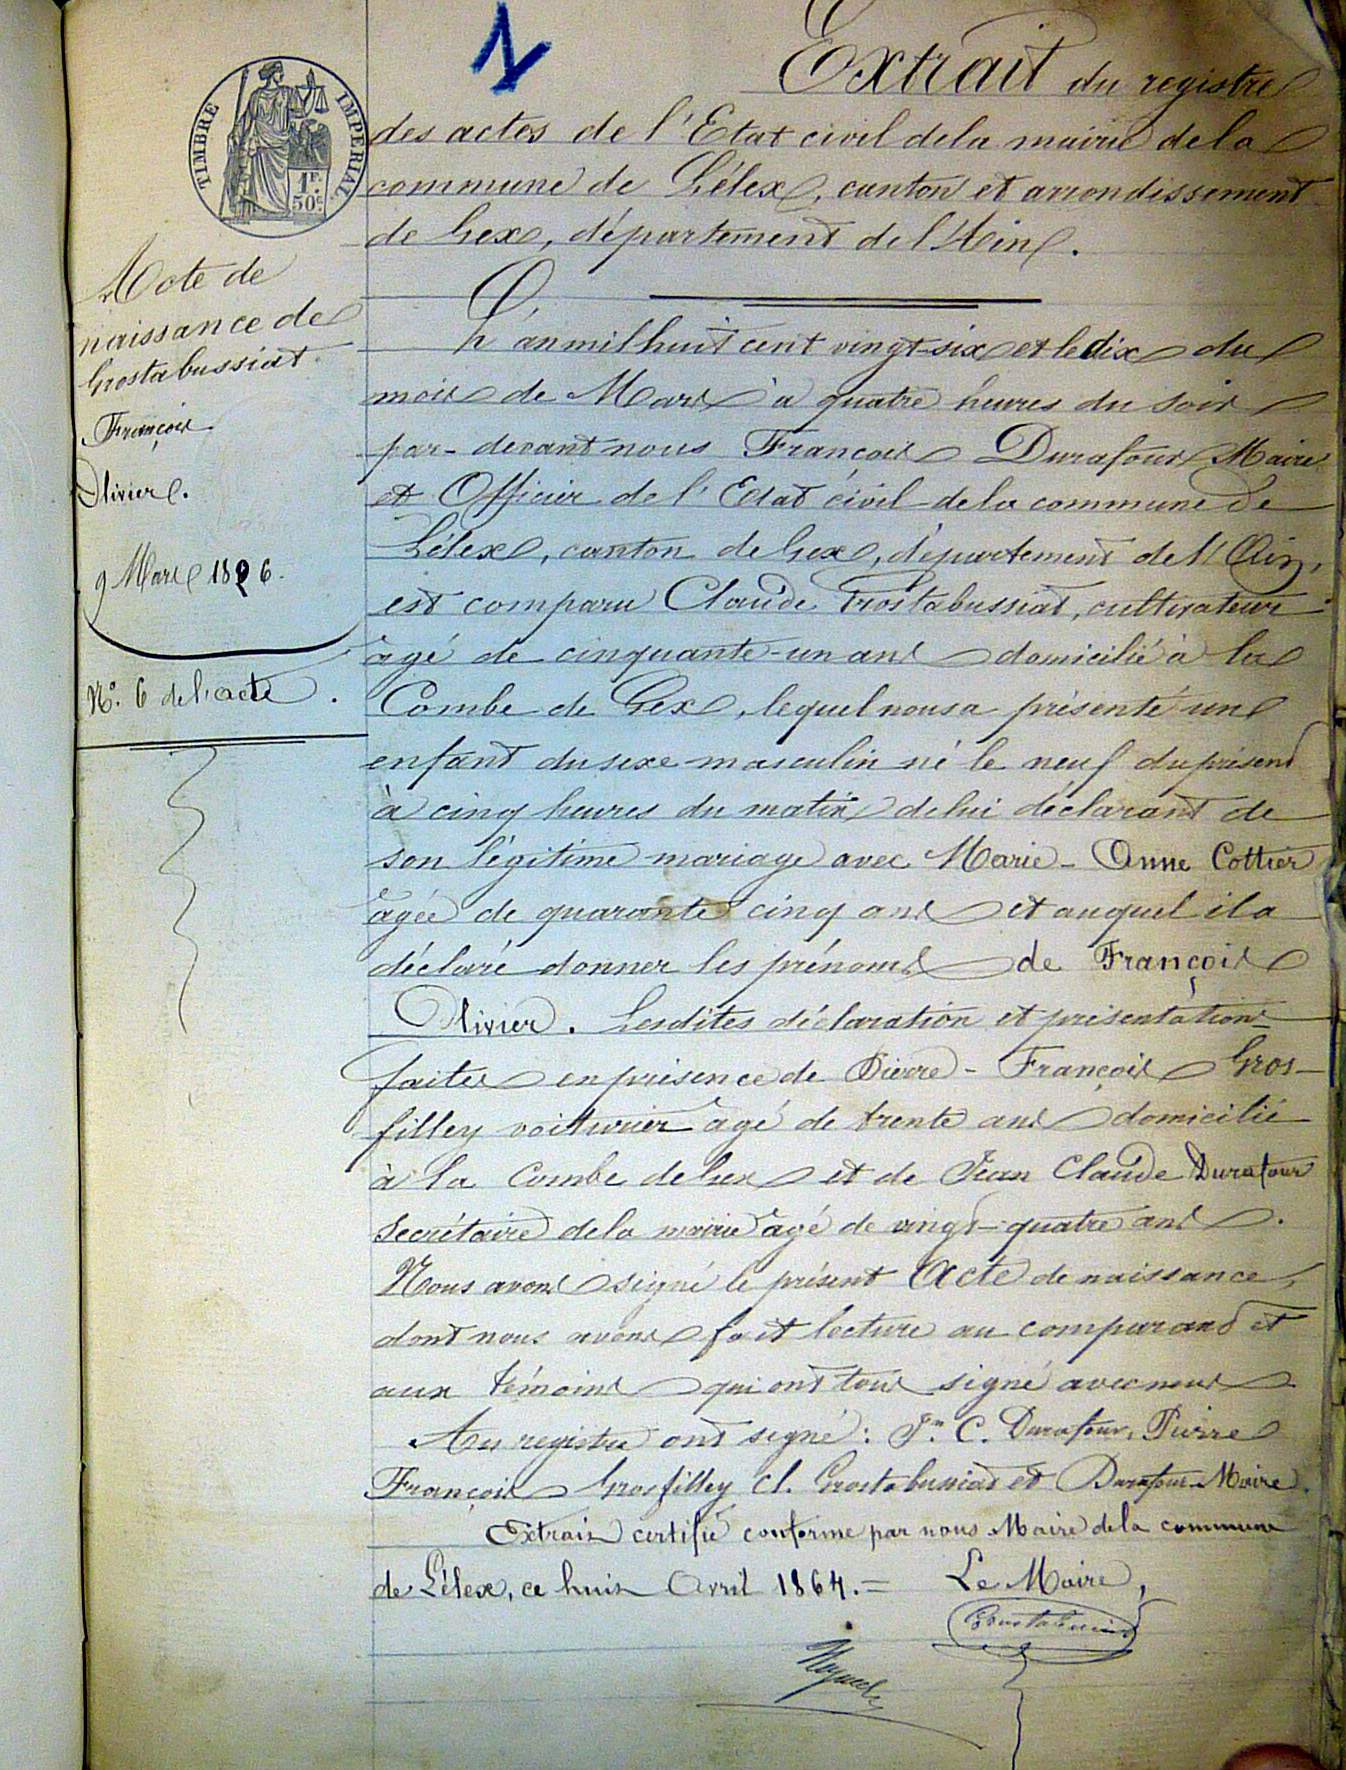 Extrait du registre
des actes de l'Etat civil de la mairie de la
commune de Lélex, canton et arrondissement
de Gex, département de l'Ain.
TIMBRE IMPERIAL
1F. 50c.
Acte de
naissance de
Grostabussiat
François
Olivier.
9 Mars 1826.
No. 6 de l'acte.
L'an mil huit cent vingt-six et le dix du
mois de Mars à quatre heures du soir
par-devant nous François Durafour Maire
et Officier de l'Etat civil de la commune de
Lélex, canton de Gex, département de l'Ain,
est comparu Claude Grostabussiat, cultivateur
âgé de cinquante-un ans domicilié à la
Combe de Gex, lequel nous a présenté un
enfant du sexe masculin né le neuf du présent
à cinq heures du matin de lui déclarant de
son légitime mariage avec Marie-Anne Cottier
âgée de quarante cinq ans et auquel il a
déclaré donner les prénoms de François
Olivier. Lesdites déclaration et présentation
faites en présence de Pierre-François Gros-
filley voiturier âgé de trente ans domicilié
à la Combe de Gex et de Jean Claude Durafour
Secrétaire de la mairie âgé de vingt-quatre ans.
Nous avons signé le présent Acte de naissance,
dont nous avons fait lecture au comparant et
aux témoins qui ont tous signé avec nous
Au registre ont signé : Jn. C. Durafour, Pierre
François Grosfilley Cl. Grostabussiat et Durafour Maire.
Extrait certifié conforme par nous Maire de la commune
de Lélex, ce huit Avril 1864. = Le Maire,
Grostabussiat